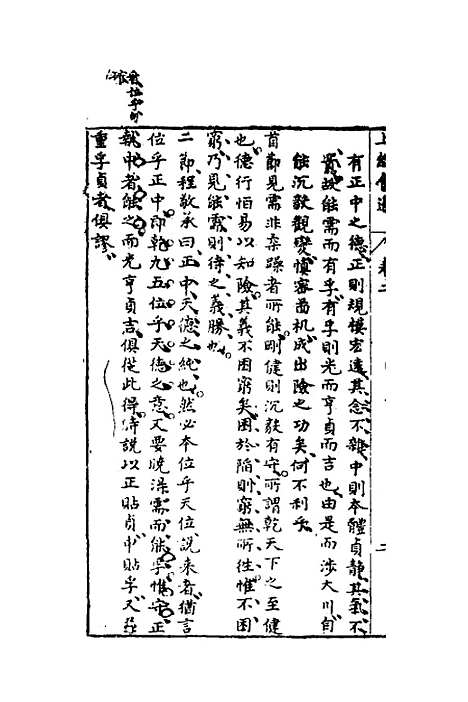 上經會通 卷二 二
有正中之德正則規模宏遠其念不雜中則本體貞靜其氣不
貳故能需而有孚有孚則光而亨貞而吉也由是而涉大川自
能沉毅觀變慎審啬机成出險之功矣何不利乎
首節見需非柔躁者所能剛健則沉毅有守所謂乾天下之至健
也德行恒易以知險其義不困窮矣困於陷則窮無所往惟不困
窮乃見能需則待之義勝也
二節程敬承曰正中天德之純也然必本位乎天位說來者猶言
位乎正中即乾九五位乎天德之意又要曉得需而能孚惟守正
執中者能之而光亨貞吉俱從此得倚說以正貼貞中貼孚又並
重孚貞者俱謬
位乎